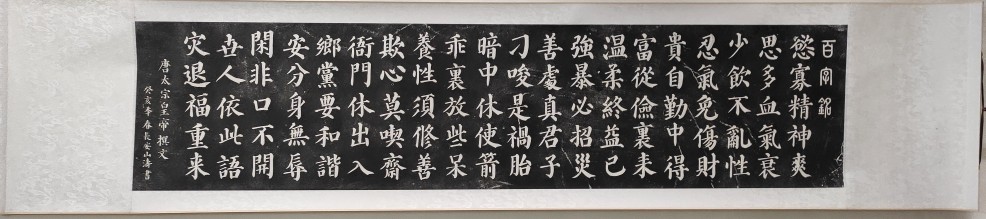 百字銘
慾寡精神爽
思多血氣衰
少飲不亂性
忍氣免傷財
貴自勤中得
富從儉裏來
温柔終益己
強暴必招災
善處真君子
刁唆是禍胎
暗中休使箭
乖裏放些呆
養性須修善
欺心莫喫齋
衙門休出入
鄉黨要和諧
安分身無辱
閑非口不開
世人依此語
灾退福重来
唐太宗皇帝撰文
癸亥季春長安山濤書